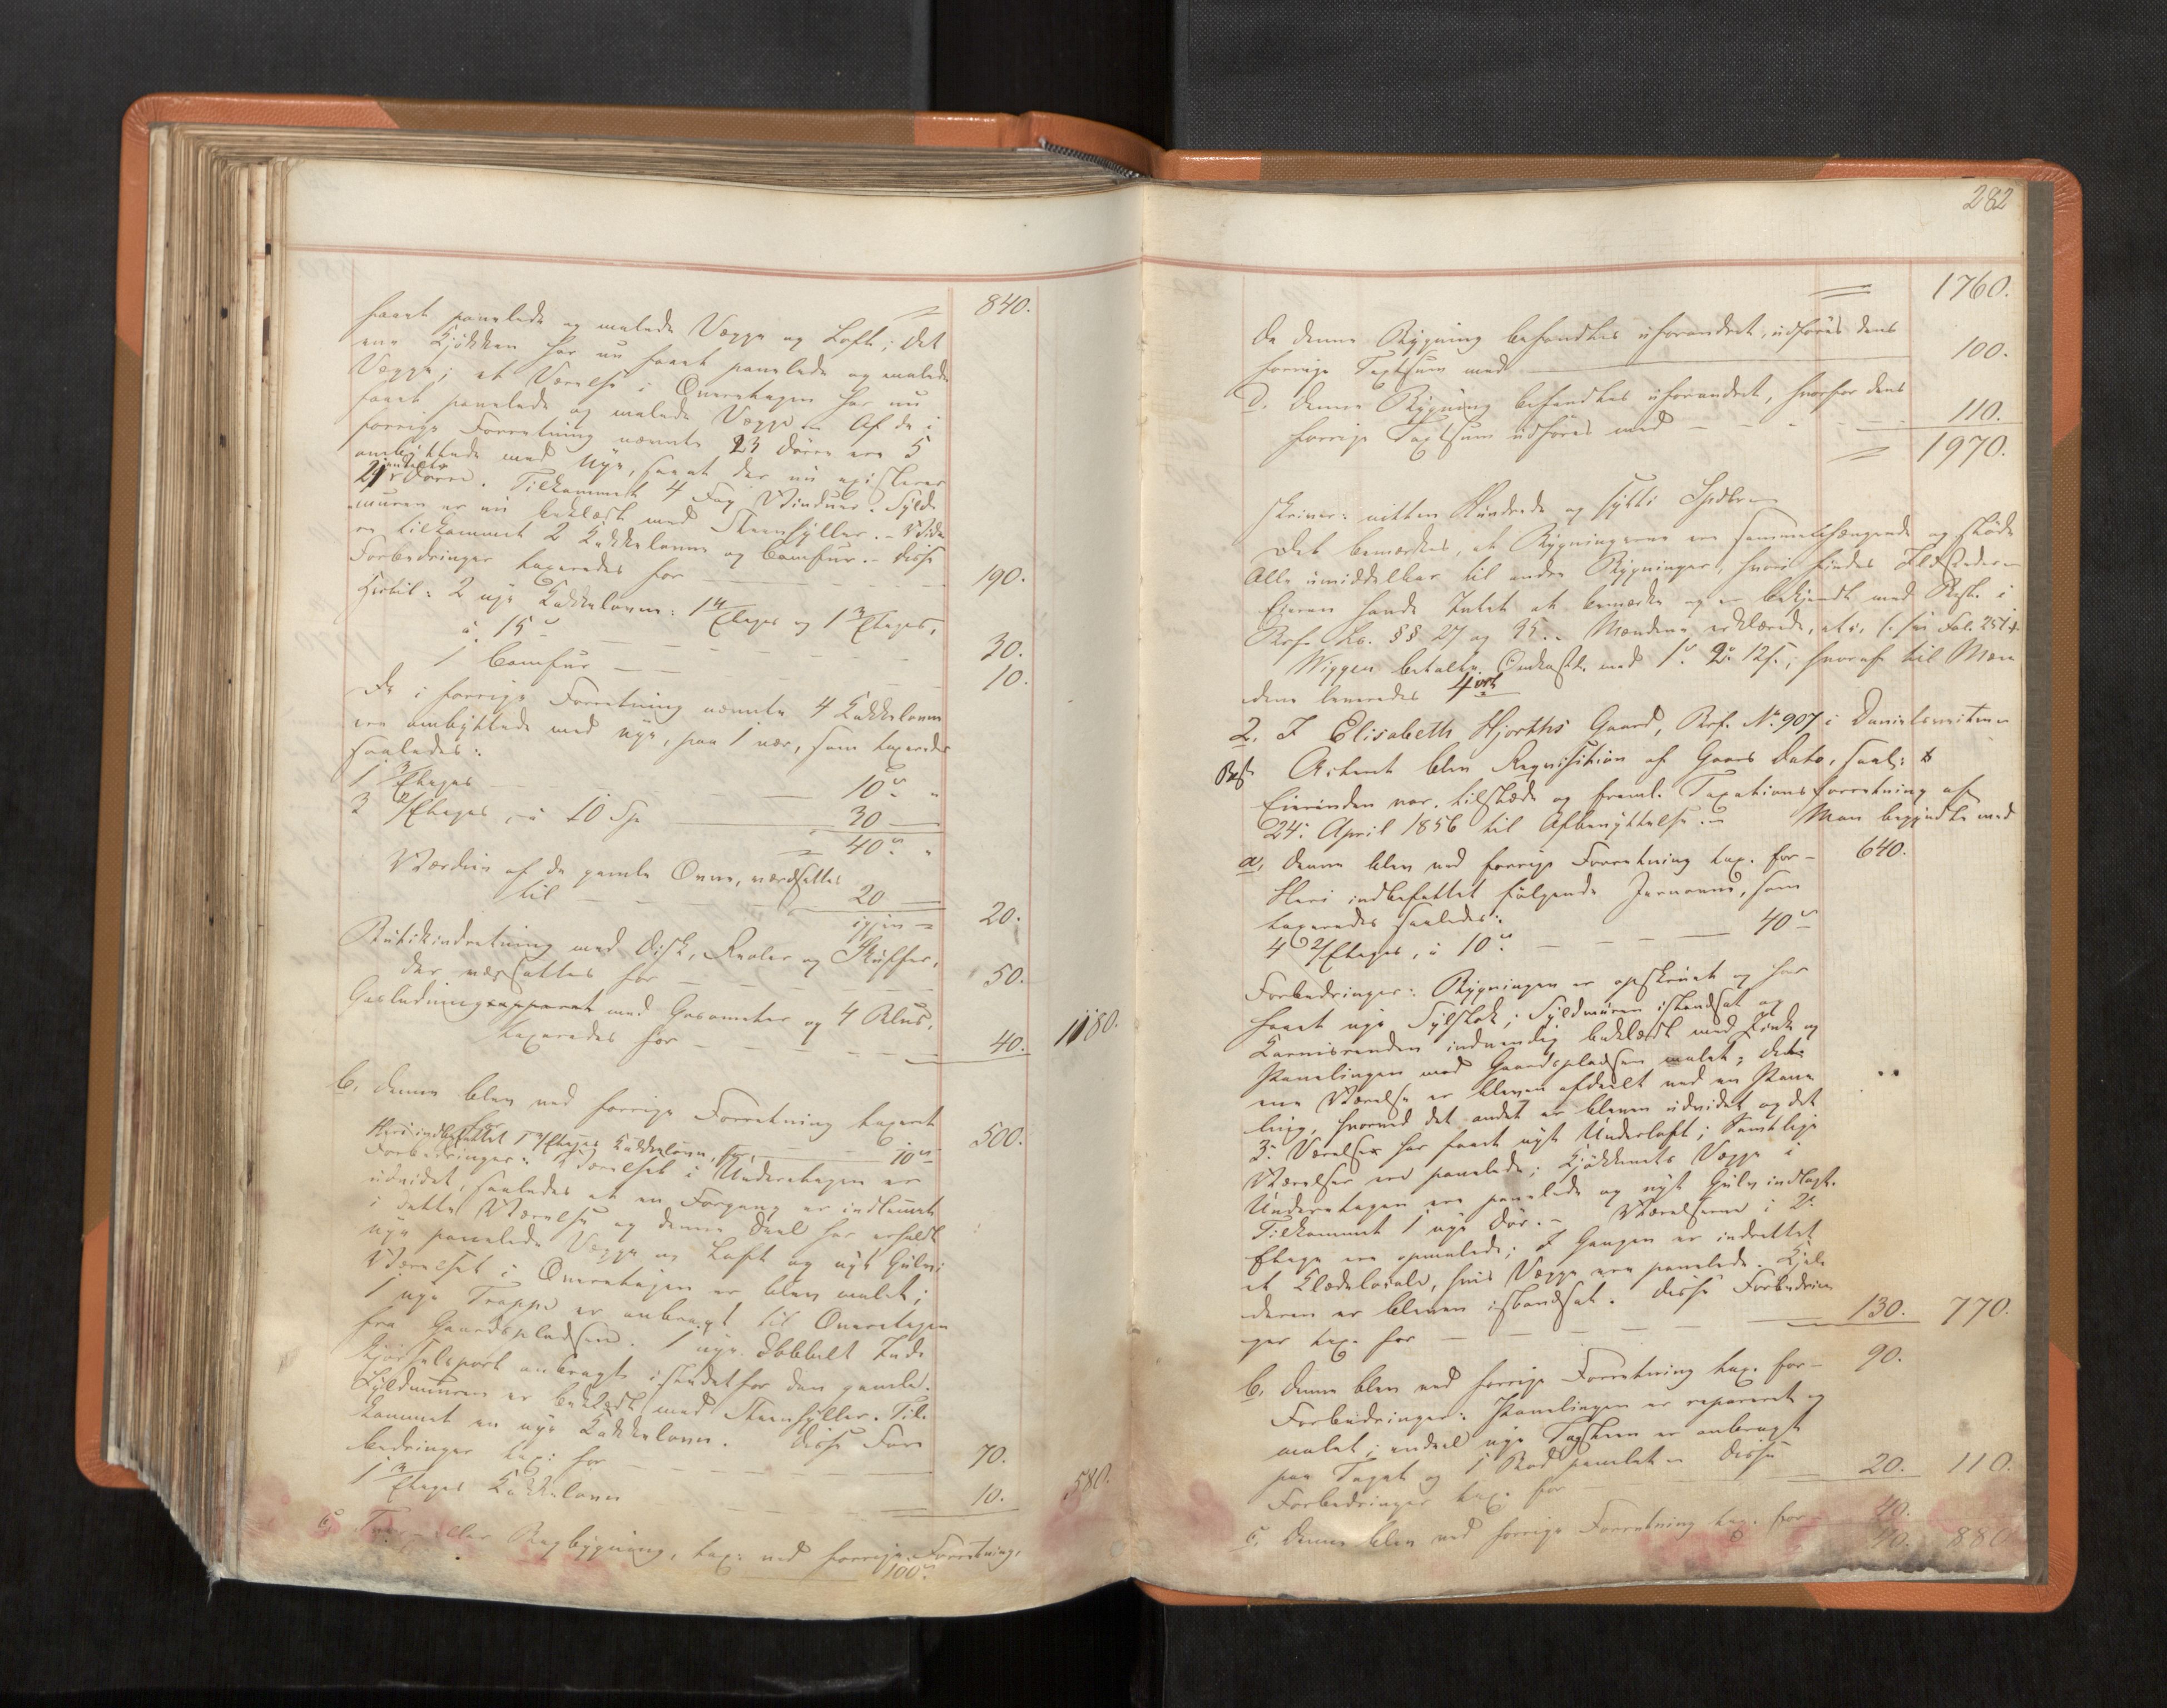 = 840.
faaet panelede og malede Vægge og Loft; det
ene Kjøkken har nu faaet panelede og malede
Vægge; et Værelse i Overetagen har nu
faaet panelede og malede Vægge. Af de i
forrige Forretning nævnte 23 Døre ere 5
ombyttede med nye, saa at der nu existerer
21 Døre. Tilkommet 4 Fag Vinduer. Syld-
muren er nu beklædt med Steenhyller. - Vide-
re tilkommet 2 Kakkelovne og Comfur. - Disse
Forbedringer taxeredes for 190.
Hertil: 2 nye Kakkelovne: 1 4 Etages og 1 3 Etages,
à 15 30.
1 Comfur 10.
De i forrige Forretning nævnte 4 Kakkelovne
ere ombyttede med nye, paa 1 nær, som taxeredes
saaledes:
1 3 Etages 10 "
3 2/Etages, à 10 Sp 30
= 40 "
Værdien af de gamle Ovne, værdsattes
til 20
igjen = 20.
Butikindretning med Disk, Reoler og Skuffer,
der værdsattes for 50.
Gasledningsapparat med Gasometer og 4 Blus,
taxeredes for 40. 1180.
b, denne blev ved forrige Forretning taxeret
for 500.
Heri indbefattet 1 2/Etages Kakkelovn, for 10
Forbedringer: Værelset i Underetagen er
udvidet, saaledes at en Forgang er indlemmet
i dette Værelse og denne Deel har erholdt
nye panelede Vægge og Loft og nyt Gulv;
Værelset i Overetagen er blev malet;
1 nye Trappe er anbragt til Overetagen
fra Gaardspladsen. 1 nye dobbelt Ind-
kjørselsport anbragt istedetfor den gamle.
Syldmuren er beklædt med Steenhyller. Til-
kommet en nye Kakkelovn. Disse For-
bedringer tax: for 70.
1 3 Etages Kakkelovn 10. 580.
c, eller Bagbygning, tax: ved forrige Forretning,
100
282
= 1760.
Da denne Bygning befandtes uforandret, udføres dens
forrige Taxtsum med 100.
d, denne Bygning befandtes uforandret, hvorfor dens
forrige Taxtsum udføres med 110.
= 1970.
skriver: nitten Hundrede og sytti Spdlr
Det bemærkes, at Bygningerne ere sammenhængende og støde
Alle umiddelbar til andre Bygninger, hvori findes Ildsteder
Eieren havde Intet at bemærke og er bekjendt med Beste i
Brf. Lo. §§ 27 og 95. - Mændene erklærede, at i, (. se Fol. 251 .)
Wiggen betalte Omkostn. med 1 2 12 s.; hvoraf til Mæn-
dene leveredes 4 ort
2. I Elisabeth Hjorths Gaard, Brf. No. 907 i Danielsveiten
Acteret blev Requisition af Gaars Dato, saal:
Eierinden var tilstede og freml. Taxationsforretning af
24: April 1856 til Afbenyttelse. - Man begyndte med
a, denne blev ved forrige Forretning tax. for - 640.
Heri indbefattet følgende Jernovne, som
taxeredes saaledes:
4 2/Etages, à 10 40
Forbedringer: Bygningen er opskruet og har
faaet nye Sylstok; Syldmuren istandsat og
Karnisrenden indvendig beklædt med Zink og
Panelingen mod Gaardspladsen malet; det
ene Værelse er bleven afdeelt ved en Pane-
ling, hvorved det andet er bleven udvidet og det
3: Værelse har faaet nyt Underloft; Samtlige
Værelser ere panelede; Kjøkkenets Vægge i
Underetagen ere panelede og nyt Gulv indlagt.
Tilkommet 1 nye Dør. - Værelserne i 2:
Etage ere opmalede; I Gangen er indrettet
et Klædelocale, hvis Vægge ere panelede. Kjel-
deren er bleven istandsat. Disse Forbedrin-
ger tax. for 130. 770.
b, denne blev ved forrige Forretning tax. for - 90.
Forbedringer: Panelingen er repareret og
malet; endeel nye Tagsteen er anbragt
paa Taget og 1 Bod panelet. Disse
Forbedringer tax. for 20. 110.
c, denne blev ved forrige Forretning tax. for 40.
40. 880